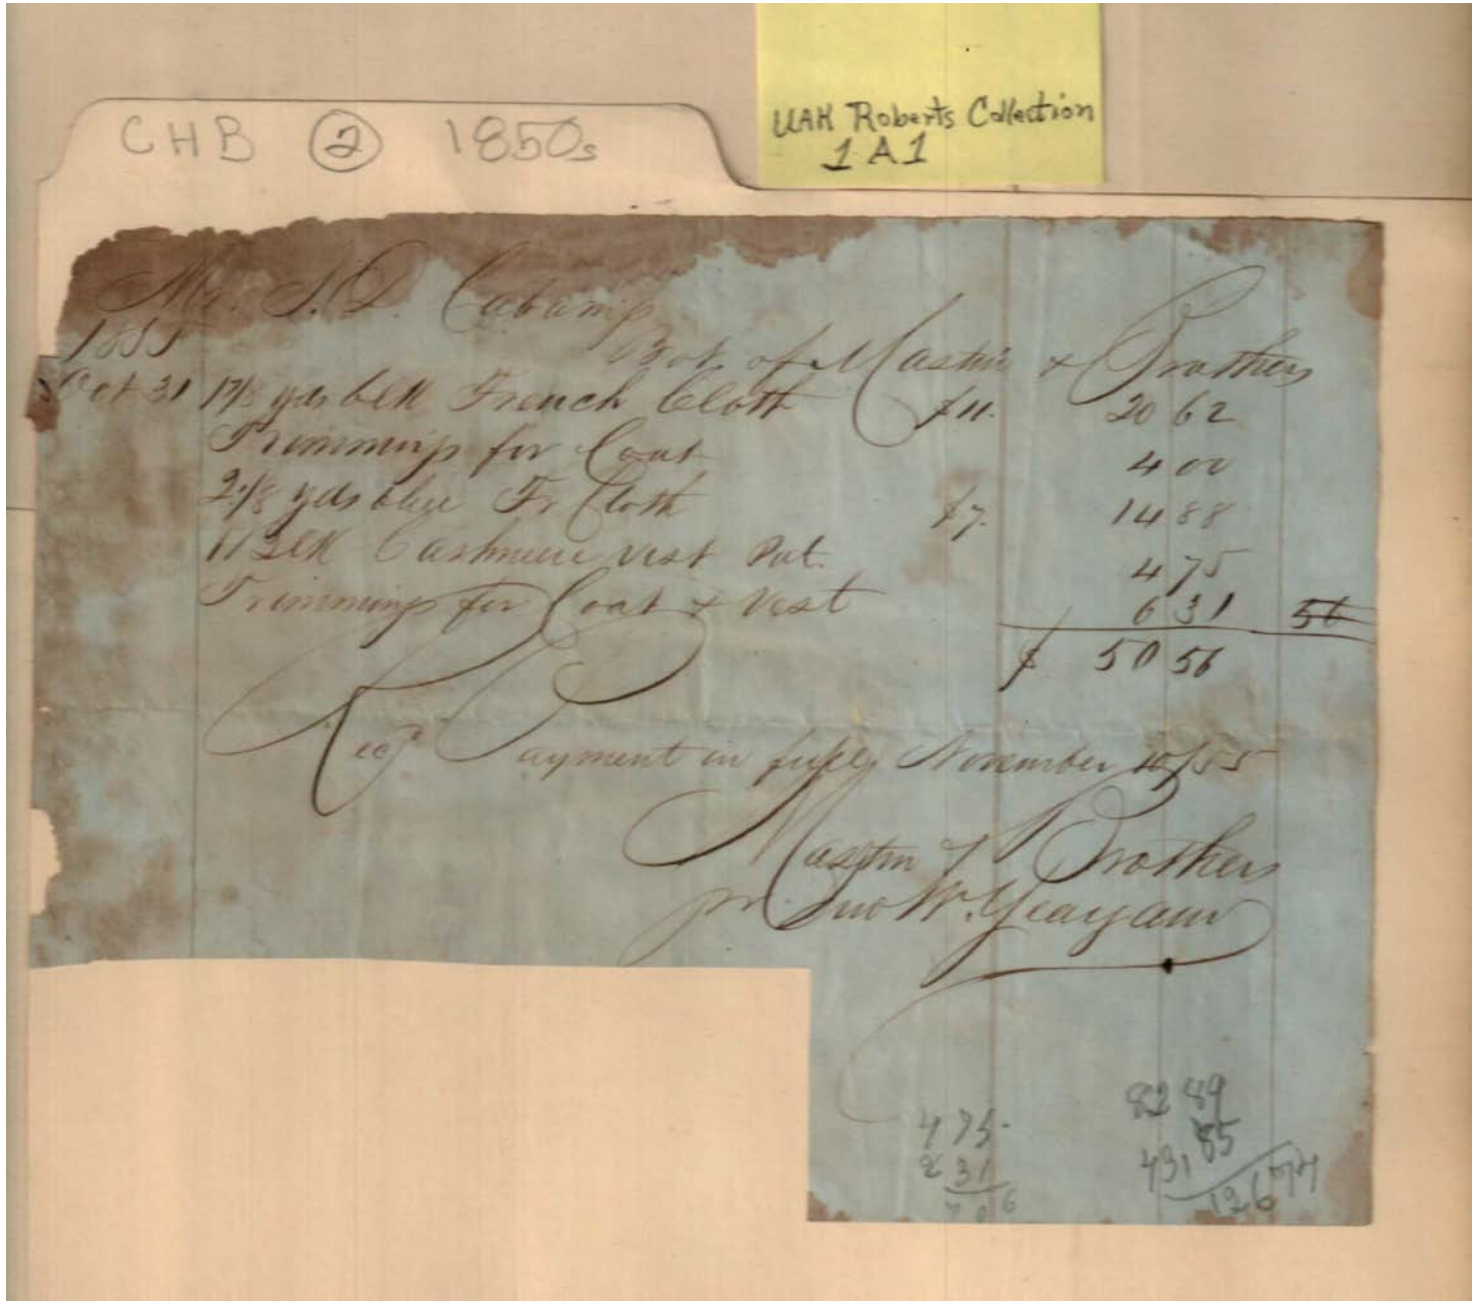 CHB ② 1850s
UAH Roberts Collection
1 A 1
Mr. S. D. Cabaniss
1855 Bot. of Mastin & Brothers
Oct 31 1 7/8 yds blk French Cloth $11. 20 62
Trimmings for Coat 4 00
2 1/8 yds blue Fr. Cloth $7. 14 88
1 Blk Cashmere vest Pat. 4 75
Trimmings for Coat & Vest 6 31 56
$ 50 56
Recd Payment in full November 10/55
Mastin & Brothers
pr. Jno W.
4 75
2 31
7 0 6
82 89
43, 85
126 74